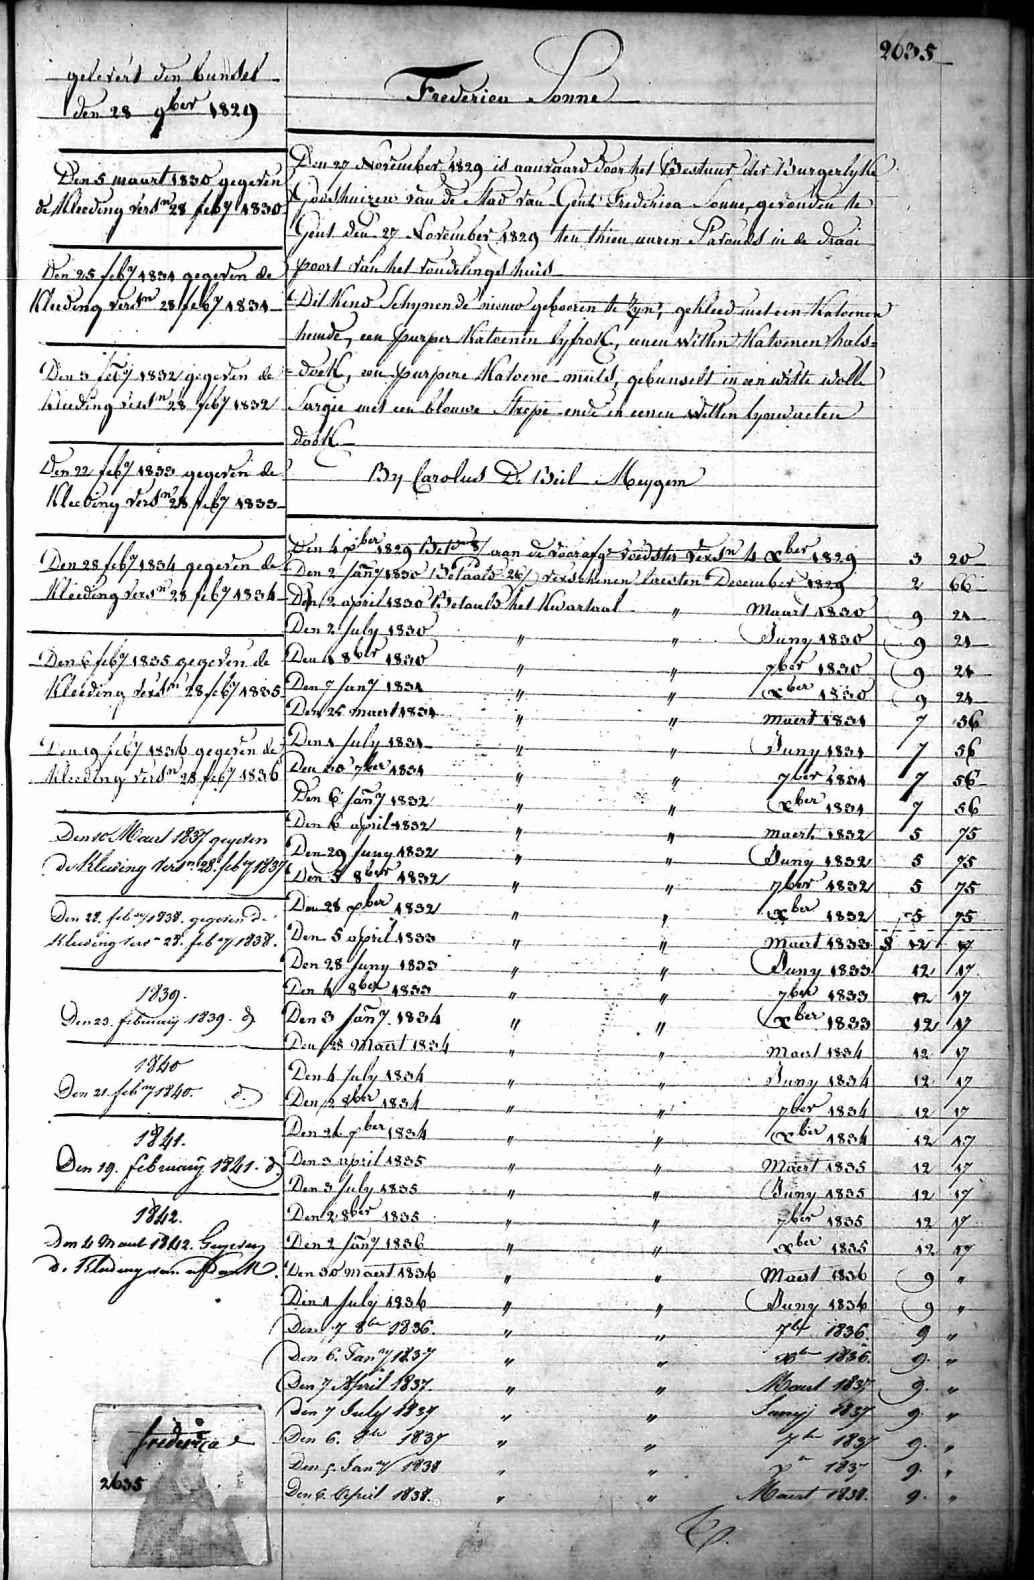 2635
gelevert den bundel
den 28 9ber 1829
Frederica Sonne
Den 5 maart 1830 gegeven
de Kleeding versn 28 feby 1830
Den 25 feby 1831 gegeven de
Kleeding versn 28 feby 1831
Den 3 feby 1832 gegeven de
Kleeding versn 28 feby 1832
Den 22 feby 1833 gegeven de
Kleeding versn 28 feby 1833
Den 28 feby 1834 gegeven de
Kleeding versn 28 feby 1834
Den 6 feby 1835 gegeven de
Kleeding versn 28 feby 1835
Den 19 feby 1836 gegeven de
Kleeding versn 28 feby 1836
Den 10 Maart 1837 gegeven
de Kleeding versn 28 feby 1837
Den 28 feby 1838 gegeven de
Kleeding versn 28 feby 1838.
1839.
Den 23 february 1839. d
1840
Den 21 febry 1840. d.
1841.
Den 19. february 1841. d.
1842.
Den 4 Maart 1842. Gegeven
de Kleeding van
Den 27 November 1829 is aanvaard door het Bestuur der Burgerlyke
Godshuizen van de Stad van Gent Frederica Sonne, gevonden te
Gent den 27 November 1829 ten thien uuren S'avonds in de draai
poort van het vondelingshuis
Dit Kind Schynende nieuw gebooren te Zyn, gekleed met een Katoenen
hemde, een purper Katoenen lyfrok, eenen Witten Katoenen hals=
=doek, een purpere Katoene muts, gebunselt in een witte wolle
Sargie met een blouwe Strepe ende in eenen Witten lynwaeten
doek
By Carolus De Beil Meygem
Den 4 Xber 1829 Bet aan de voorafge voedster versn 4 Xber 1829 3 20
Den 2 Jany 1830 Betaald 26 verschenen laesten December 1829 2 66
Den 2 april 1830 Betaald het Kwartaal " Maart 1830 9 24
Den 2 July 1830 " " Juny 1830 9 24
Den 1 8ber 1830 " " 7ber 1830 9 24
Den 7 Jany 1831 " " Xber 1830 9 24
Den 25 maert 1831 " " Maert 1831 7 56
Den 1 July 1831 " " Juny 1831 7 56
Den 30 7ber 1831 " " 7ber 1831 7 56
Den 6 Jany 1832 " " Xber 1831 7 56
Den 6 april 1832 " " maert 1832 5 75
Den 29 Juny 1832 " " Juny 1832 5 75
Den 5 8ber 1832 " " 7ber 1832 5 75
Den 28 Xber 1832 " " Xber 1832 5 75
Den 5 april 1833 " " Maert 1833 12 17
Den 28 Juny 1833 " " Juny 1833 12 17
Den 4 8ber 1833 " " 7ber 1833 12 17
Den 3 Jany 1834 " " Xber 1833 12 17
Den 28 Maert 1834 " " Maert 1834 12 17
Den 4 July 1834 " " Juny 1834 12 17
Den 2 8ber 1834 " " 7ber 1834 12 17
Den 24 Xber 1834 " " Xber 1834 12 17
Den 3 april 1835 " " Maert 1835 12 17
Den 3 July 1835 " " Juny 1835 12 17
Den 2 8ber 1835 " " 7ber 1835 12 17
Den 2 Jany 1836 " " Xber 1835 12 17
Den 30 maert 1836 " " Maert 1836 9 "
Den 1 July 1836 " " Juny 1836 9 "
Den 7 8ber 1836. " " 7ber 1836. 9 "
Den 6. Jany 1837 " " Xber 1836. 9. "
Den 7 April 1837. " " Maert 1837 9. "
Den 7 July 1837 " " Junij 1837 9. "
Den 6. 8ber 1837 " " 7ber 1837 9. "
Den 5. Jany 1838 " " Xber 1837 9. "
Den 6. April 1838. " " Maert 1838. 9. "
frederica
2635